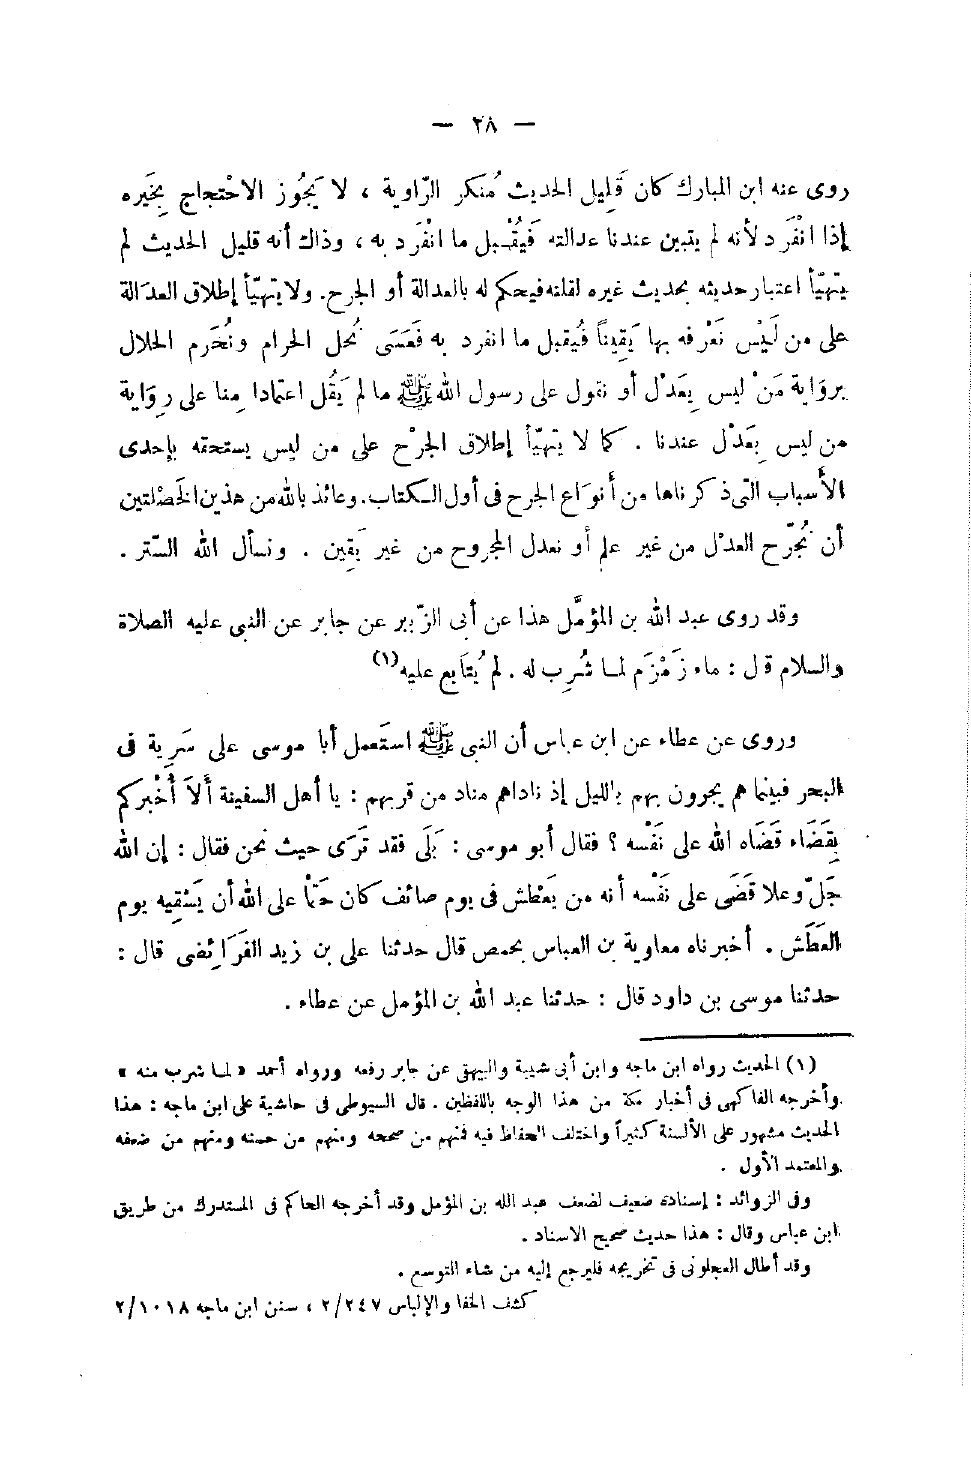 — ٢٨ —
روى عنه ابن المبارك كان قَلِيل الحديث مُنكر الرّاوية ، لا يَجُوز الاحْتجاج بِخَبره
إذا انْفَرَد لأنه لم يتبين عندنا عدالته فَيُقْبل ما انْفَرَد به ، وذاك أنه قليل الحديث لم
يتهيّأ اعتبار حديثه بحديث غيره لقلته فيحكم له بالعدالة أو الجرح. ولا يتهيّأ إطلاق العدَالة
على من لَيْس نَعْرفه بها يَقِيناً فَيُقبل ما انفرد به فَعَسَى نُحل الحرام ونُحَرم الحلال
بروَاية مَنْ ليس بِعَدْل أو نقول على رسول الله ﷺ ما لم يَقُل اعتمادا مِنا على رِوَاية
من ليس بِعَدْل عندنا . كما لا يتهيّأ إطلاق الجرْح على من ليس يستحقه بإحدى
الأسباب التى ذكرناها من أنوَاع الجرح فى أول الكتاب. وعائذ بالله من هذين الخَصْلتين
أن نُجَرّح العدْل من غير علم أو نعدل المجروح من غير يَقِين . ونسأل الله السّتر .
وقد روى عبد الله بن المؤمَّل هذا عن أبى الزّبير عن جابر عن النبى عليه الصلاة
والسلام قال : ماء زَمْزَم لما شُرِب له . لم يُتَابع عليه(١)
وروى عن عطاء عن ابن عباس أن النبى ﷺ استَعمل أبا موسى على سَرِية فى
البحر فبينما هم يجرون بهم بالليل إذ ناداهم مناد من قربهم : يا أهل السفينة ألَا أُخْبركم
بِقَضَاء قَضَاه الله على نَفْسه ؟ فقال أبو موسى : بَلَى فقد تَرَى حيث نحن فقال : إن الله
جَلّ وعلا قَضَى على نَفْسه أنه من يَعْطش فى يوم صائف كان حَتْما على الله أن يَسْقِيه يوم
العَطَش . أخبرناه معاوية بن العباس بحمص قال حدثنا على بن زيد الفَرَائِضى قال :
حدثنا موسى بن داود قال : حدثنا عبد الله بن المؤمل عن عطاء .
(١) الحديث رواه ابن ماجه وابن أبى شيبة والبيهقى عن جابر رفعه ورواه أحمد « لما شرب منه »
وأخرجه الفاكهى فى أخبار مكة من هذا الوجه باللفظين . قال السيوطى فى حاشية على ابن ماجه : هذا
الحديث مشهور على الألسنة كثيراً واختلف الحفاظ فيه فمنهم من صححه ومنهم من حسنه ومنهم من ضعفه
والمعتمد الأول .
وفى الزوائد : إسناده ضعيف لضعف عبد الله بن المؤمل وقد أخرجه الحاكم فى المستدرك من طريق
ابن عباس وقال : هذا حديث صحيح الاسناد .
وقد أطال العجلونى فى تخريجه فليرجع إليه من شاء التوسع .
كشف الخفا والإلباس ٢/٢٤٧ ، سنن ابن ماجه ٢/١٠١٨